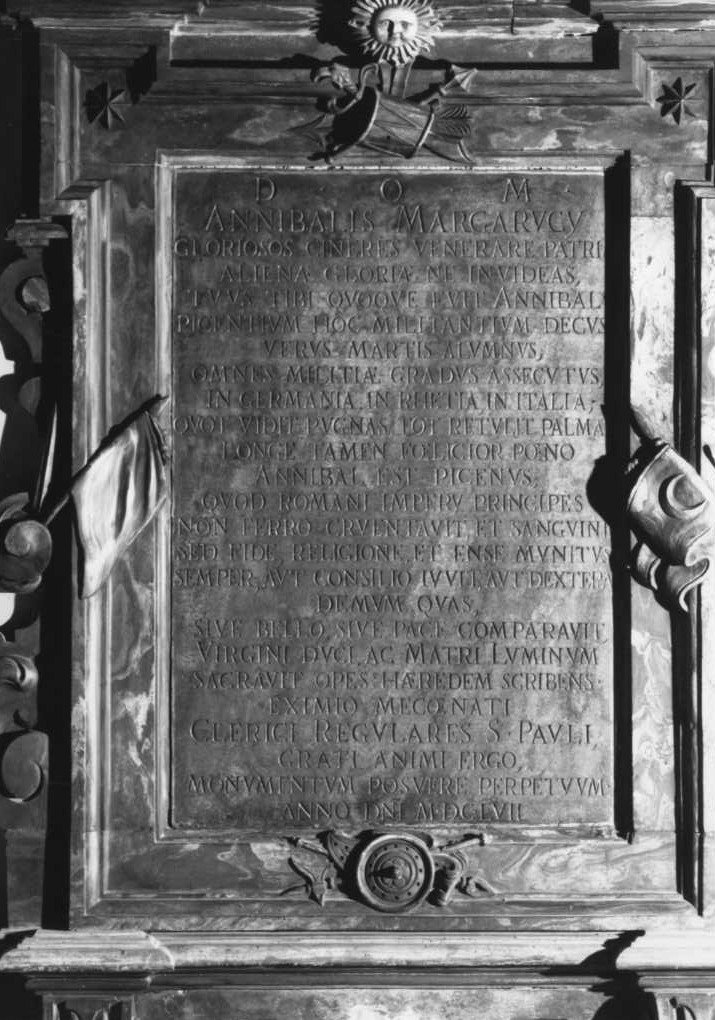 D O M
ANNIBALIS MARGARVCY
GLORIOSOS CINERES VENERARE PATRI
ALIENÆ GLORIÆ NE INVIDEAS,
TVVS TIBI QVOQVE FVIT ANNIBAL
PICENTIVM HOC MILITANTIVM DECVS
VERVS MARTIS ALVMNVS,
OMNES MILITIÆ GRADVS ASSECVTVS,
IN GERMANIA, IN RHETIA IN ITALIA;
QVOT VIDIT PVGNAS TOT RETVLIT PALMA
LONGE TAMEN FŒLICIOR POENO
ANNIBAL EST PICENVS;
QVOD ROMANI IMPERY PRINCIPES
NON FERRO CRVENTAVIT ET SANGVINE
SED FIDE, RELIGIONE, ET ENSE MVNITVS
SEMPER, AVT CONSILIO IVVIT, AVT DEXTERA
DEMVM QVAS,
SIVE BELLO, SIVE PACE COMPARAVIT,
VIRGINI DVCI, AC MATRI LVMINVM
SACRAVIT OPES HÆREDEM SCRIBENS
EXIMIO MECŒNATI
CLERICI REGVLARES S · PAVLI,
GRATI ANIMI ERGO,
MONVMENTVM POSVERE PERPETVVM
ANNO DNI MDCLVII